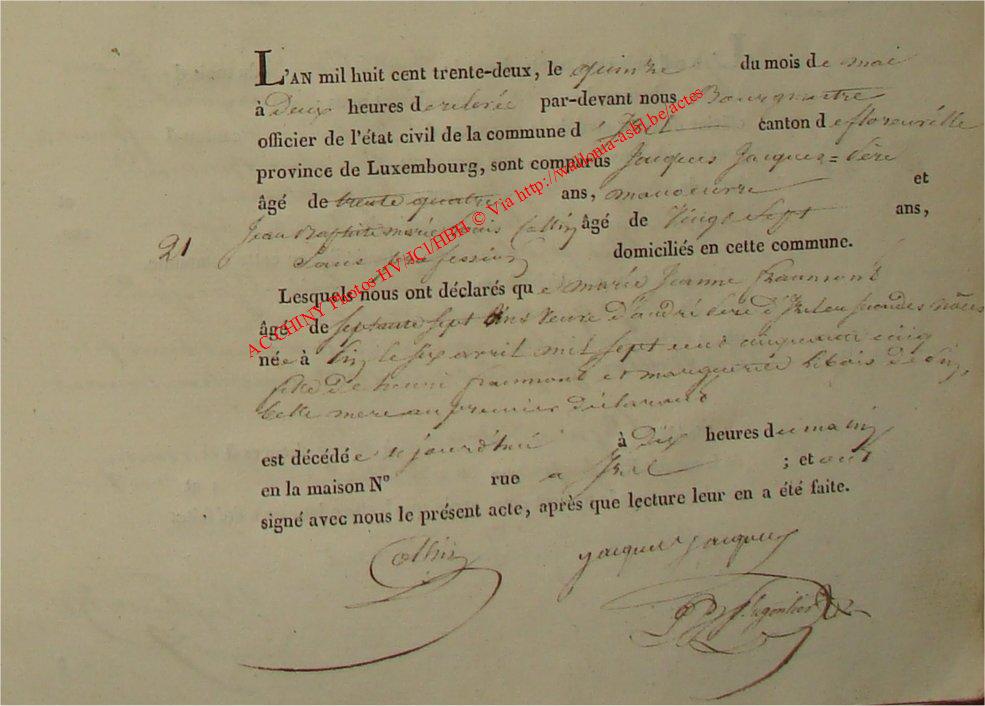 L'AN mil huit cent trente-deux, le quinze du mois de mai
à Deux heures de relevée par-devant nous Bourgmestre
officier de l'état civil de la commune d'Izel canton de florenville
province de Luxembourg, sont comparus Jacques Jacques =
âgé de trente quatre ans, manoeuvre et
21 Jean Baptiste Collin âgé de Vingt Sept ans,
Sans profession domiciliés en cette commune.
Lesquels nous ont déclarés que marie Jeanne fraumont
âgé de Septante Sept ans Veuve d'andré d'Izel en Secondes
née à le six avril mil sept cent cinquante cinq
fille de henri fraumont et marguerite de
belle mere au premier déclarant
est décédée ce jourd'hui à Dix heures du matin
en la maison N° rue a Izel ; et ont
signé avec nous le présent acte, après que lecture leur en a été faite.
Collin Jacques Jacques
AC CHINY Photos HV/JCl/HBH © Via http://wallonia-asbl.be/actes